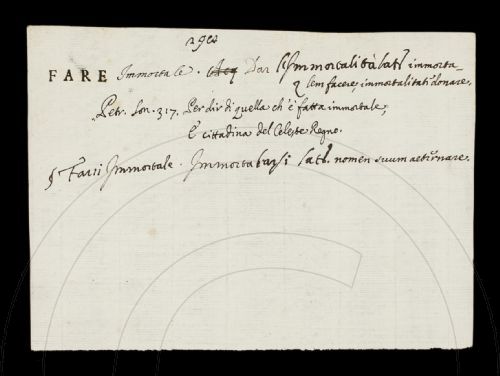 FARE Immortale. Dar l'Immortalità lat. immorta
lem facere, immortalitati donare.
Petr. Son. 317. Per dir di quella ch'è fatta immortale,
E cittadina del Celeste Regno.
§ Farsi Immortale. Immortalarsi lat. nomen suum aeternare.